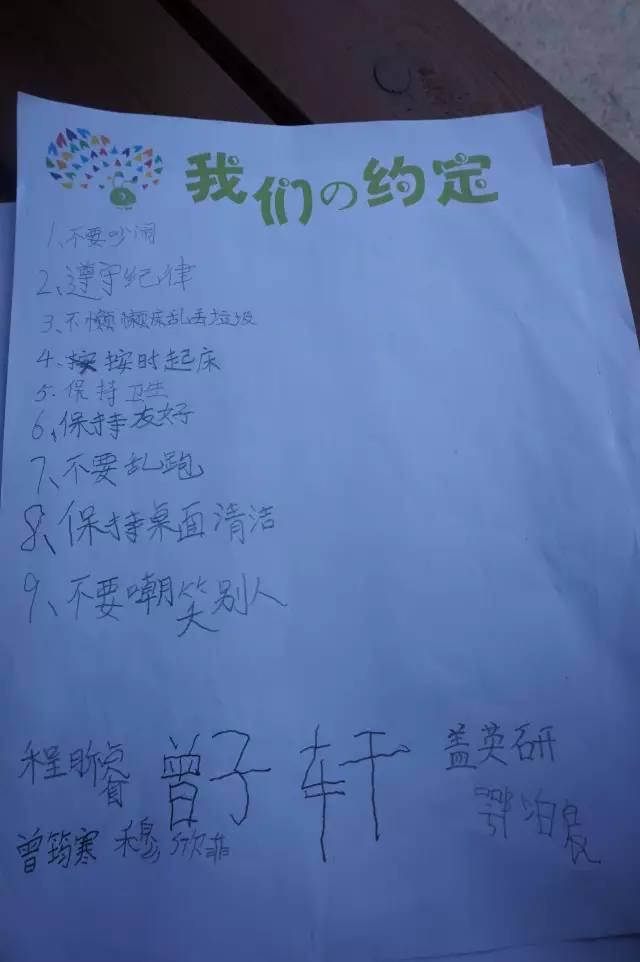 我们の约定
1、不要吵闹
2、遵守纪律
3、不懒床乱丢垃圾
4、按按时起床
5、保持卫生
6、保持友好
7、不要乱跑
8、保持桌面清洁
9、不要嘲笑别人
程昕睿 曾子轩 盖英研
曾筠寒 穆欣菲 鄂泊